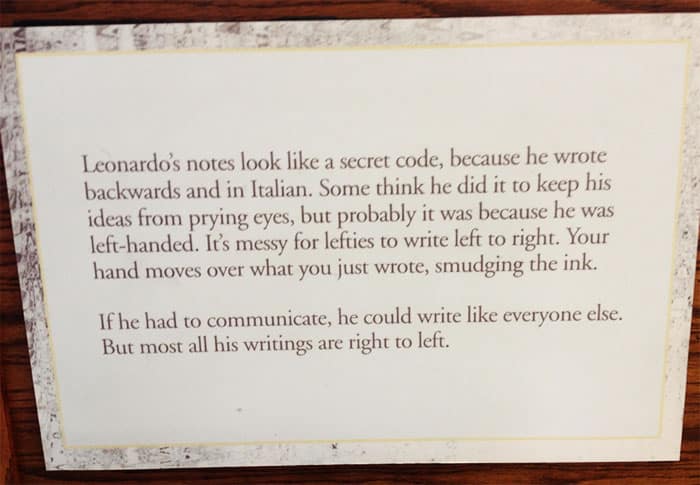 Leonardo's notes look like a secret code, because he wrote
backwards and in Italian. Some think he did it to keep his
ideas from prying eyes, but probably it was because he was
left-handed. It's messy for lefties to write left to right. Your
hand moves over what you just wrote, smudging the ink.
If he had to communicate, he could write like everyone else.
But most all his writings are right to left.